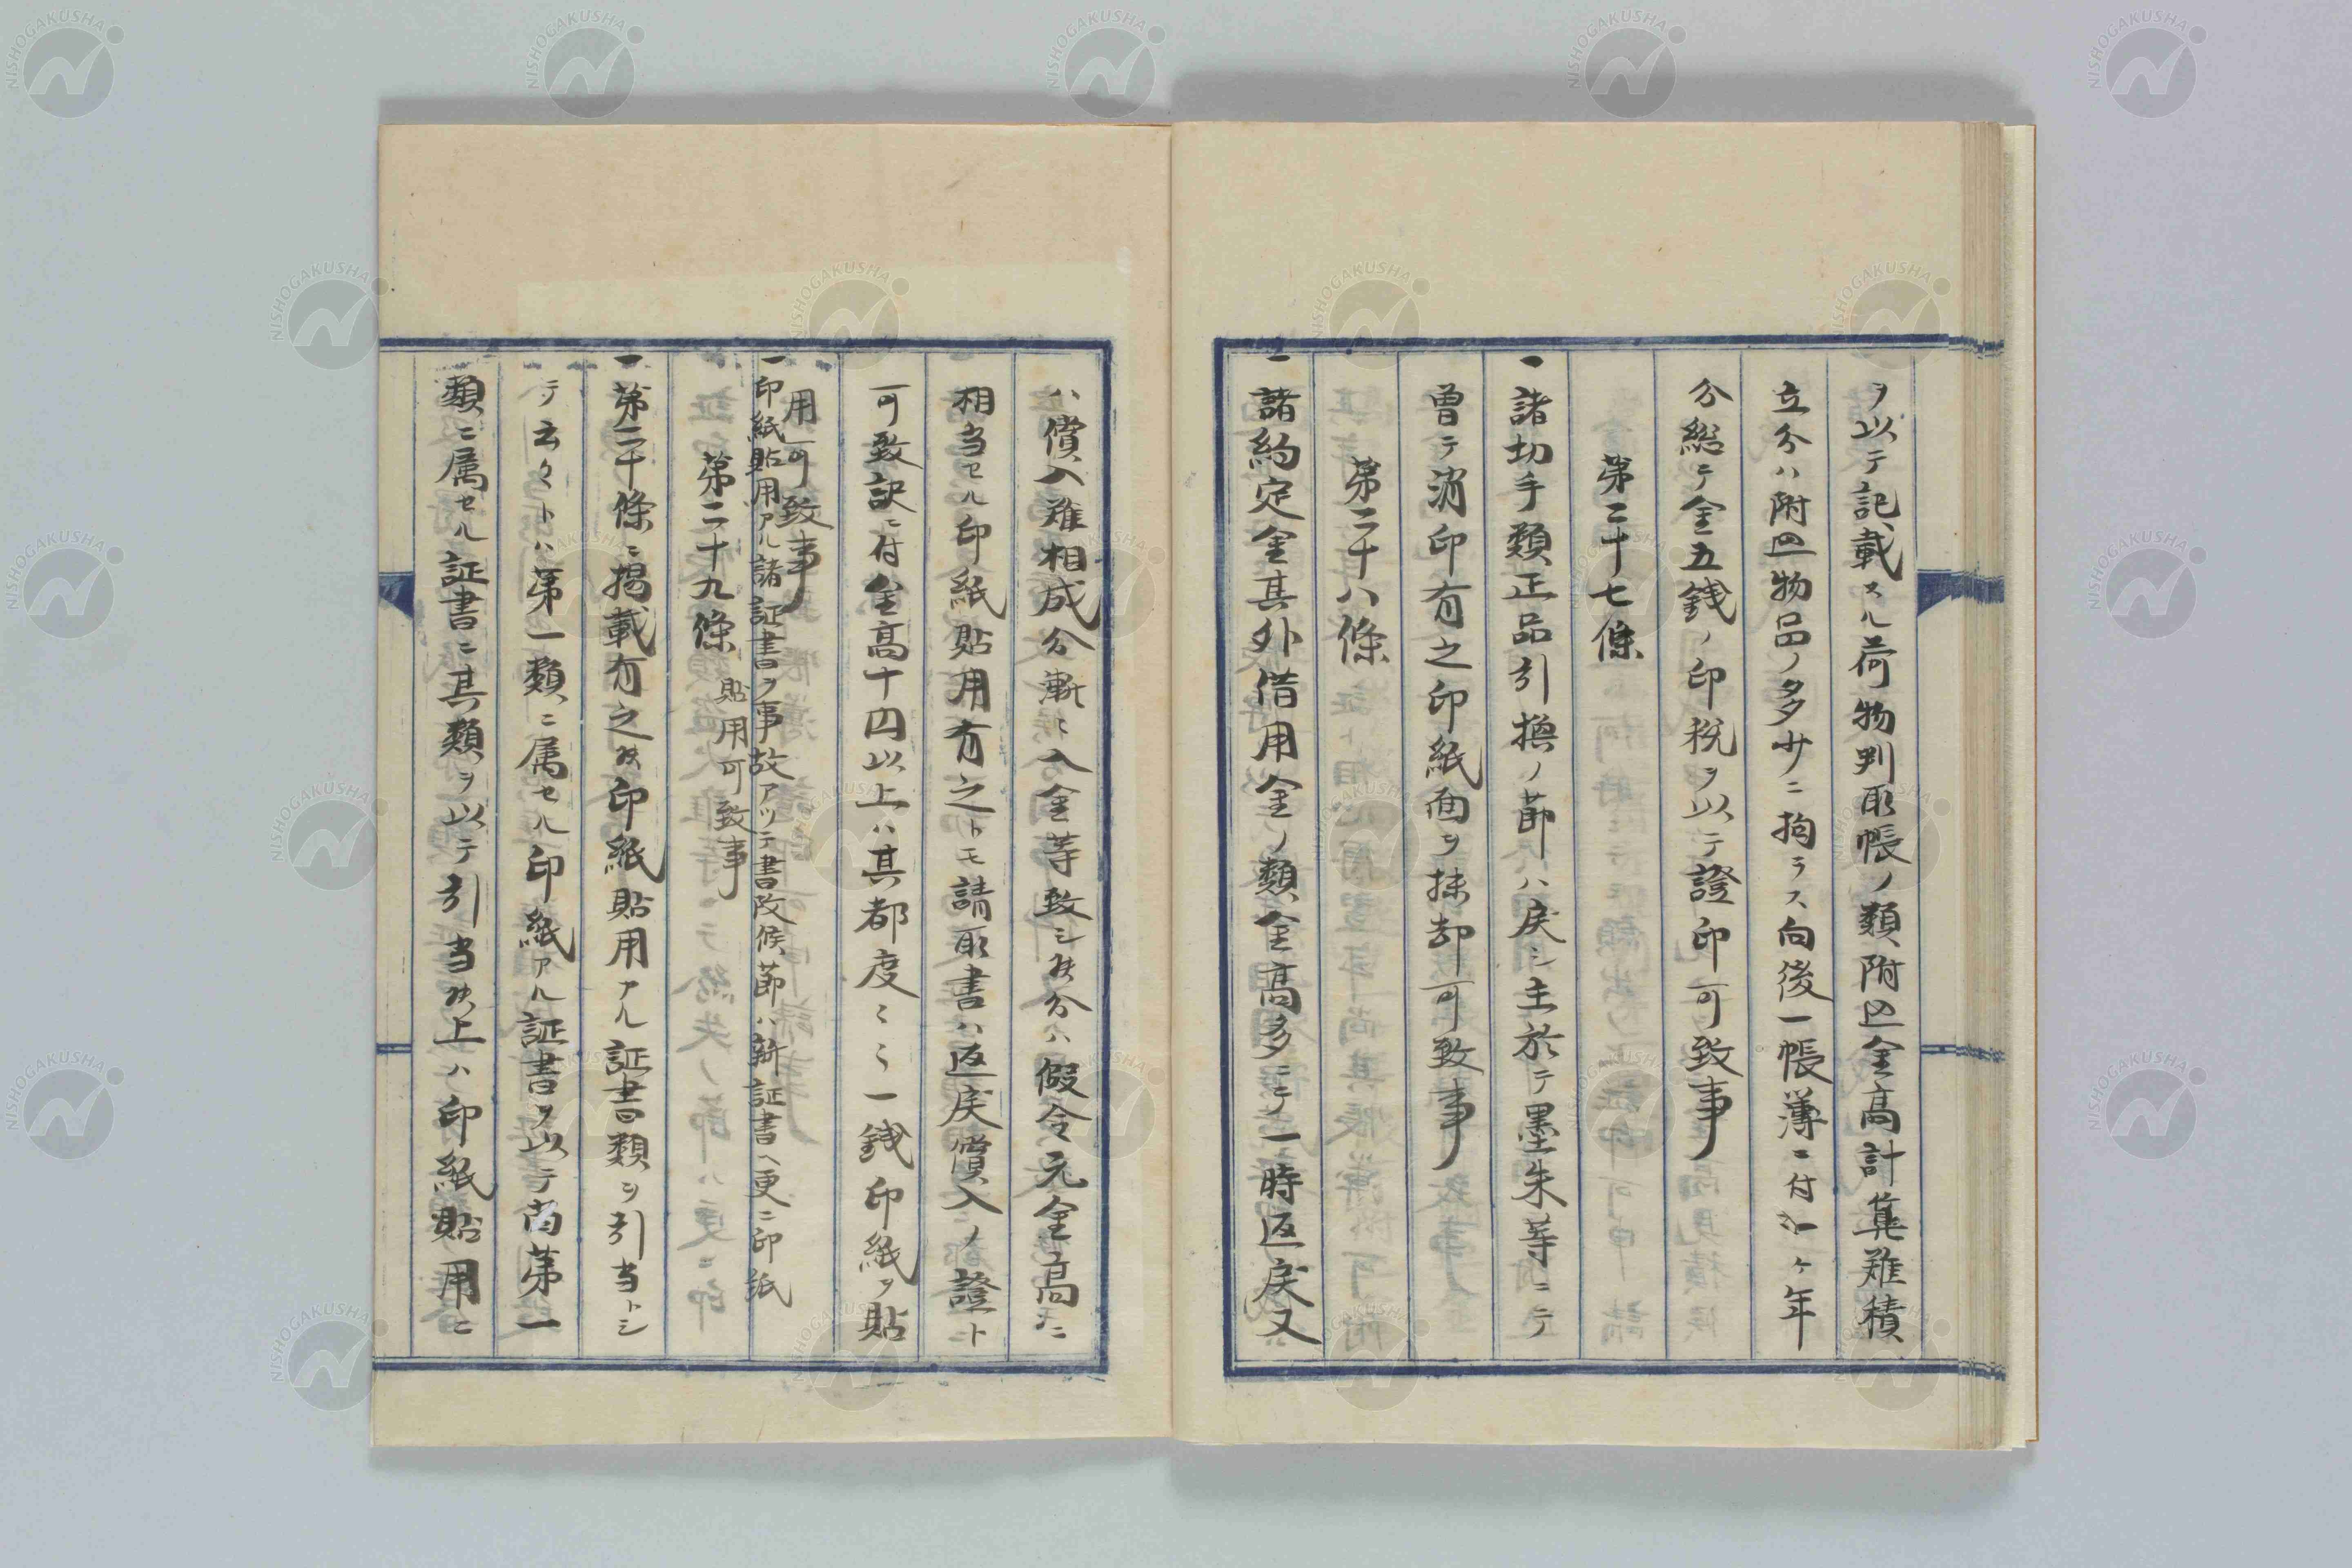 ヲ以テ記載スル荷物判取帳ノ類附込金高計算難積
立分ハ附込物品ノ多少ニ拘ラス向後一帳薄ニ付一ヶ年
分総テ金五銭ノ印税ヲ以テ證印可致事
第二十七條
一諸切手類正品引換ノ節ハ戻シ主於テ墨朱等ニテ
曽テ消印有之印紙面ヲ抹却可致事
第二十八條
一諸約定金其外借用金ノ類金高多ニテ一時返戻又
ハ償入難相成分漸々入金等致シ候分ハ假令元金高ニ
相当セル印紙貼用有之トモ請取書ハ返戻償入ノ證ト
可致訳ニ付金高十円以上ハ其都度々々一銭印紙ヲ貼
用可致事
一印紙貼用アル諸証書ヲ事故アツテ書改候節ハ新証書ヘ更ニ印紙
貼用可致事
第二十九條
一第二十條ニ掲載有之候印紙貼用アル証書類ヲ引当トシ
テ云々トハ第一類ニ属セル印紙アル証書ヲ以テ尚第一
類ニ属セル証書ニ其類ヲ以テ引当候上ハ印紙貼用ニ